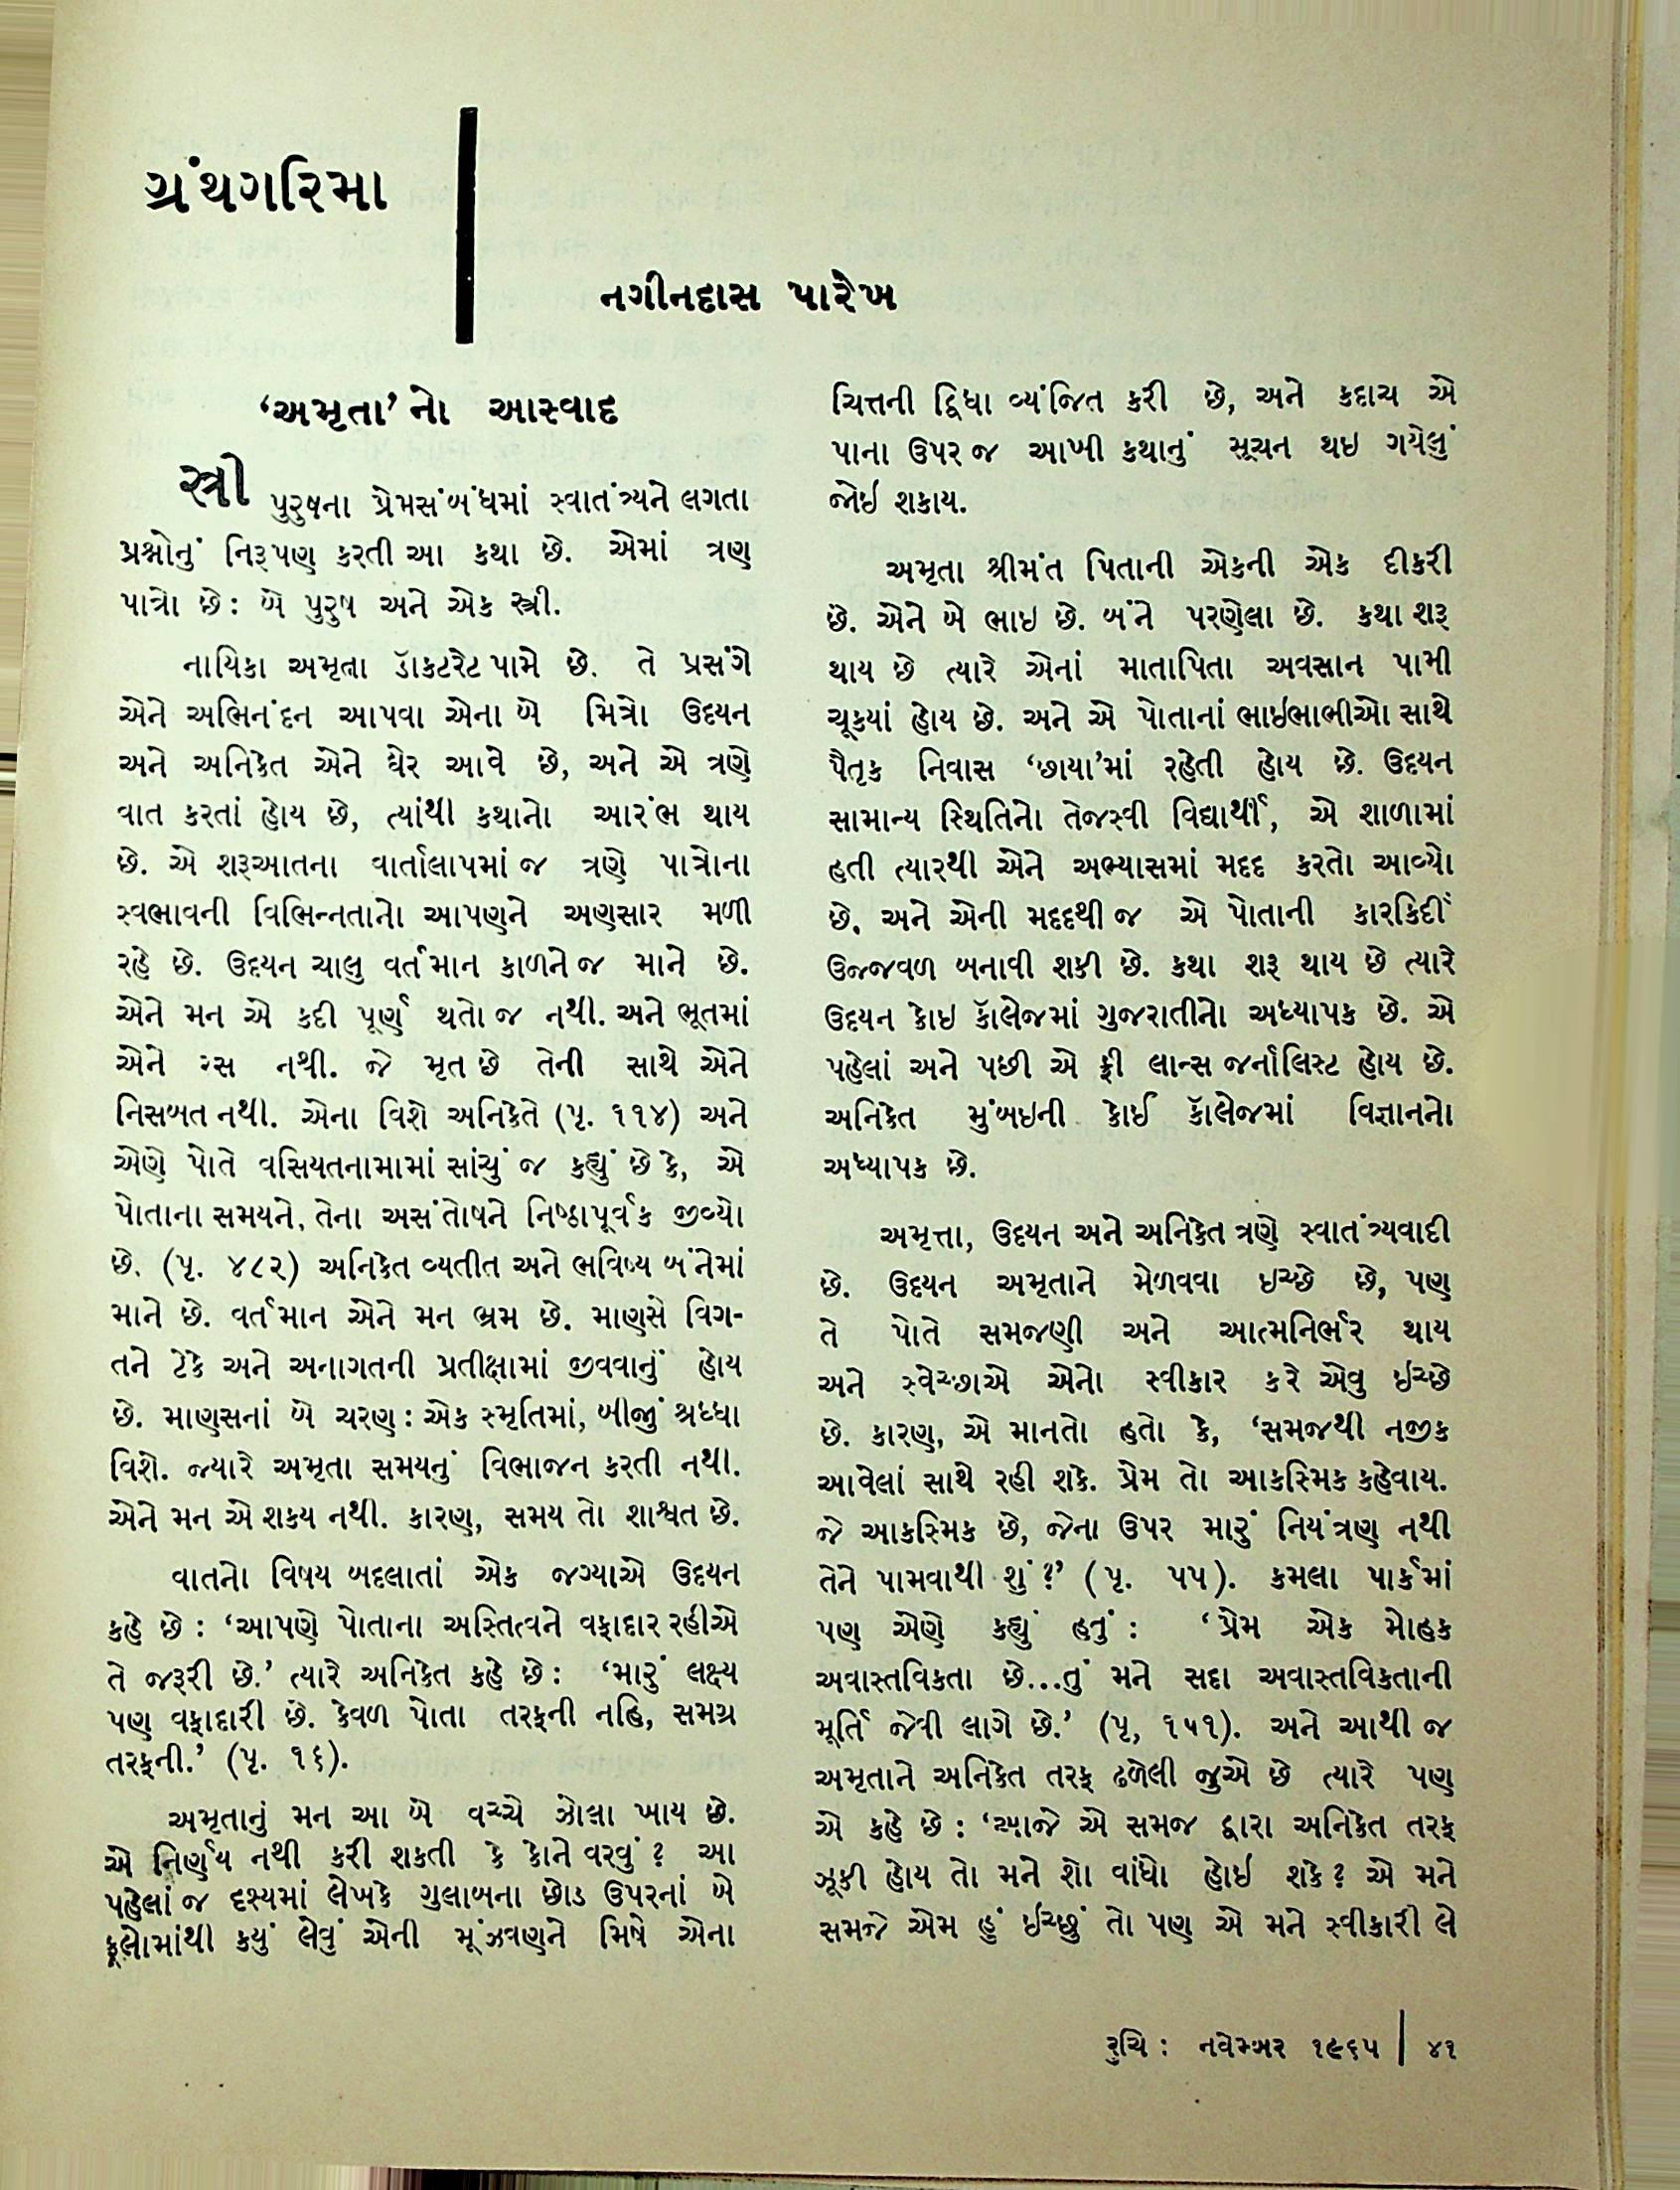 ગ્રંથગરિમા
નગીનદાસ પારેખ
‘અમૃતા’નો આસ્વાદ
સ્ત્રી પુરુષના પ્રેમસંબંધમાં સ્વાતંત્ર્યને લગતા
પ્રશ્નોનું નિરૂપણ કરતી આ કથા છે. એમાં ત્રણ
પાત્રો છે: બે પુરુષ અને એક સ્ત્રી.
નાયિકા અમૃતા ડૉકટરેટ પામે છે. તે પ્રસંગે
એને અભિનંદન આપવા એના બે મિત્રો ઉદયન
અને અનિકેત એને ઘેર આવે છે, અને એ ત્રણે
વાત કરતાં હોય છે, ત્યાંથી કથાનો આરંભ થાય
છે. એ શરૂઆતના વાર્તાલાપમાં જ ત્રણે પાત્રોના
સ્વભાવની વિભિન્નતાનો આપણને અણસાર મળી
રહે છે. ઉદયન ચાલુ વર્તમાન કાળને જ માને છે.
એને મન એ કદી પૂર્ણ થતો જ નથી. અને ભૂતમાં
એને રસ નથી. જે મૃત છે તેની સાથે એને
નિસબત નથી. એના વિશે અનિકેતે (પૃ. ૧૧૪) અને
એણે પોતે વસિયતનામામાં સાંચું જ કહ્યું છે કે, એ
પોતાના સમયને, તેના અસંતોષને નિષ્ઠાપૂર્વક જીવ્યો
છે. (પૃ. ૪૮૨) અનિકેત વ્યતીત અને ભવિષ્ય બંનેમાં
માને છે. વર્તમાન એને મન ભ્રમ છે. માણસે વિગ-
તને ટેકે અને અનાગતની પ્રતીક્ષામાં જીવવાનું હોય
છે. માણસનાં બે ચરણ: એક સ્મૃતિમાં, બીજું શ્રધ્ધા
વિશે. જ્યારે અમૃતા સમયનું વિભાજન કરતી નથી.
એને મન એ શકય નથી. કારણ, સમય તો શાશ્વત છે.
વાતનો વિષય બદલાતાં એક જગ્યાએ ઉદયન
કહે છે : ‘આપણે પોતાના અસ્તિત્વને વફાદાર રહીએ
તે જરૂરી છે.’ ત્યારે અનિકેત કહે છે: ‘મારું લક્ષ્ય
પણ વફાદારી છે. કેવળ પોતા તરફની નહિ, સમગ્ર
તરફની.’ (પૃ. ૧૬).
અમૃતાનું મન આ બે વચ્ચે ઝોલા ખાય છે.
એ નિર્ણય નથી કરી શકતી કે કોને વરવું? આ
પહેલાં જ દૃશ્યમાં લેખકે ગુલાબના છોડ ઉપરનાં બે
ફૂલોમાંથી કયું લેવું એની મૂંઝવણને મિષે એના
ચિત્તની દ્વિધા વ્યંજિત કરી છે, અને કદાચ એ
પાના ઉપર જ આખી કથાનું સૂચન થઇ ગયેલું
જોઇ શકાય.
અમૃતા શ્રીમંત પિતાની એકની એક દીકરી
છે. એને બે ભાઇ છે. બંને પરણેલા છે. કથા શરૂ
થાય છે ત્યારે એનાં માતાપિતા અવસાન પામી
ચૂકયાં હોય છે. અને એ પોતાનાં ભાઇભાભીઓ સાથે
પૈતૃક નિવાસ ‘છાયા’માં રહેતી હોય છે. ઉદયન
સામાન્ય સ્થિતિનો તેજસ્વી વિદ્યાર્થી, એ શાળામાં
હતી ત્યારથી એને અભ્યાસમાં મદદ કરતો આવ્યો
છે. અને એની મદદથી જ એ પોતાની કારકિર્દી
ઉજ્જવળ બનાવી શકી છે. કથા શરૂ થાય છે ત્યારે
ઉદયન કોઇ કૉલેજમાં ગુજરાતીનો અધ્યાપક છે. એ
પહેલાં અને પછી એ ફ્રી લાન્સ જર્નાલિસ્ટ હોય છે.
અનિકેત મુંબઇની કોઈ કૉલેજમાં વિજ્ઞાનનો
અધ્યાપક છે.
અમૃત્તા, ઉદયન અને અનિકેત ત્રણે સ્વાતંત્ર્યવાદી
છે. ઉદયન અમૃતાને મેળવવા ઇચ્છે છે, પણ
તે પોતે સમજણી અને આત્મનિર્ભર થાય
અને સ્વેચ્છાએ એનો સ્વીકાર કરે એવુ ઇચ્છે
છે. કારણ, એ માનતો હતો કે, ‘સમજથી નજીક
આવેલાં સાથે રહી શકે. પ્રેમ તો આકસ્મિક કહેવાય.
જે આકસ્મિક છે, જેના ઉપર મારું નિયંત્રણ નથી
તેને પામવાથી શું?’ (પૃ. ૫૫). કમલા પાર્કમાં
પણ એણે કહ્યું હતું : ‘પ્રેમ એક મોહક
અવાસ્તવિકતા છે...તું મને સદા અવાસ્તવિકતાની
મૂર્તિ જેવી લાગે છે.’ (પૃ, ૧૫૧). અને આથી જ
અમૃતાને અનિકેત તરફ ઢળેલી જુએ છે ત્યારે પણ
એ કહે છે : ‘આજે એ સમજ દ્વારા અનિકેત તરફ
ઝૂકી હોય તો મને શો વાંધો હોઇ શકે? એ મને
સમજે એમ હું ઈચ્છું તો પણ એ મને સ્વીકારી લે
રુચિ : નવેમ્બર ૧૯૬૫ | ૪૧